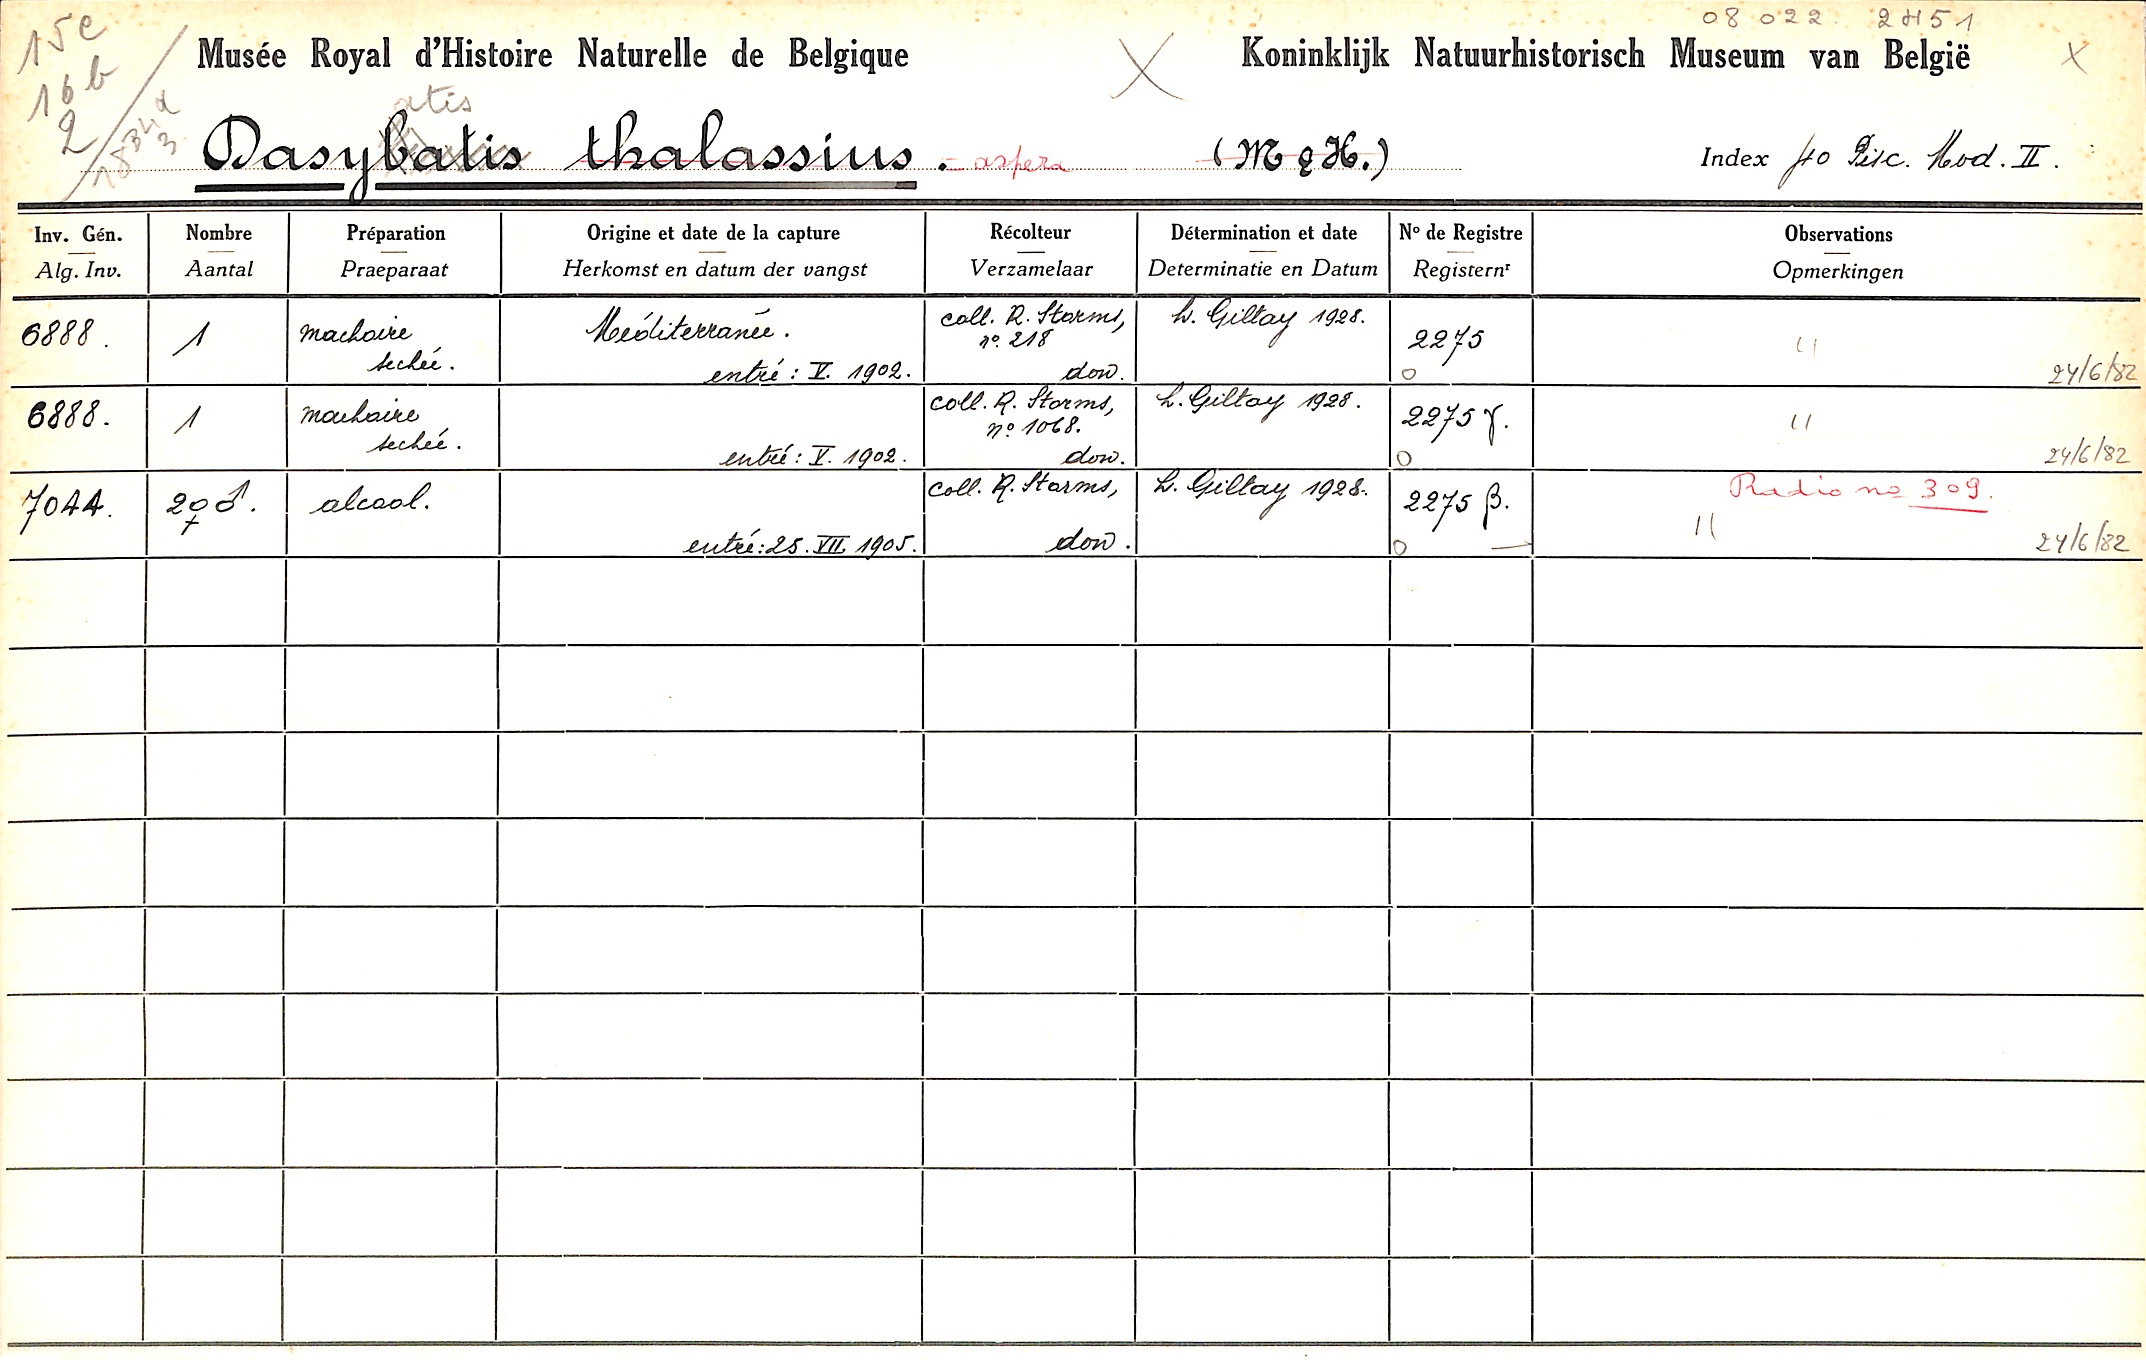 15c
16b
2
08 022 2H51
Musée Royal d'Histoire Naturelle de Belgique
Koninklijk Natuurhistorisch Museum van België
X
X
atis
Dasybatis thalassius. = aspera (M & H.)
Index 40 Pisc. Mod. II.
Inv. Gén. Nombre Préparation Origine et date de la capture Récolteur Détermination et date No de Registre Observations
Alg. Inv. Aantal Praeparaat Herkomst en datum der vangst Verzamelaar Determinatie en Datum Registernr Opmerkingen
6888. 1 machoire Méditerranée. coll. R. Storms, L. Giltay 1928. 2275 "
sechée. no. 218
entré: V. 1902. don. o 24/6/82
6888. 1 machoire coll. R. Storms, L. Giltay 1928. 2275 γ. "
sechée. no 1068.
entré: V. 1902. don. o 24/6/82
7044. 2 ♀ ♂. alcool. coll. R. Storms, L. Giltay 1928. 2275 β. Radio no 309.
"
entré: 25. VII. 1905. don. o — 24/6/82